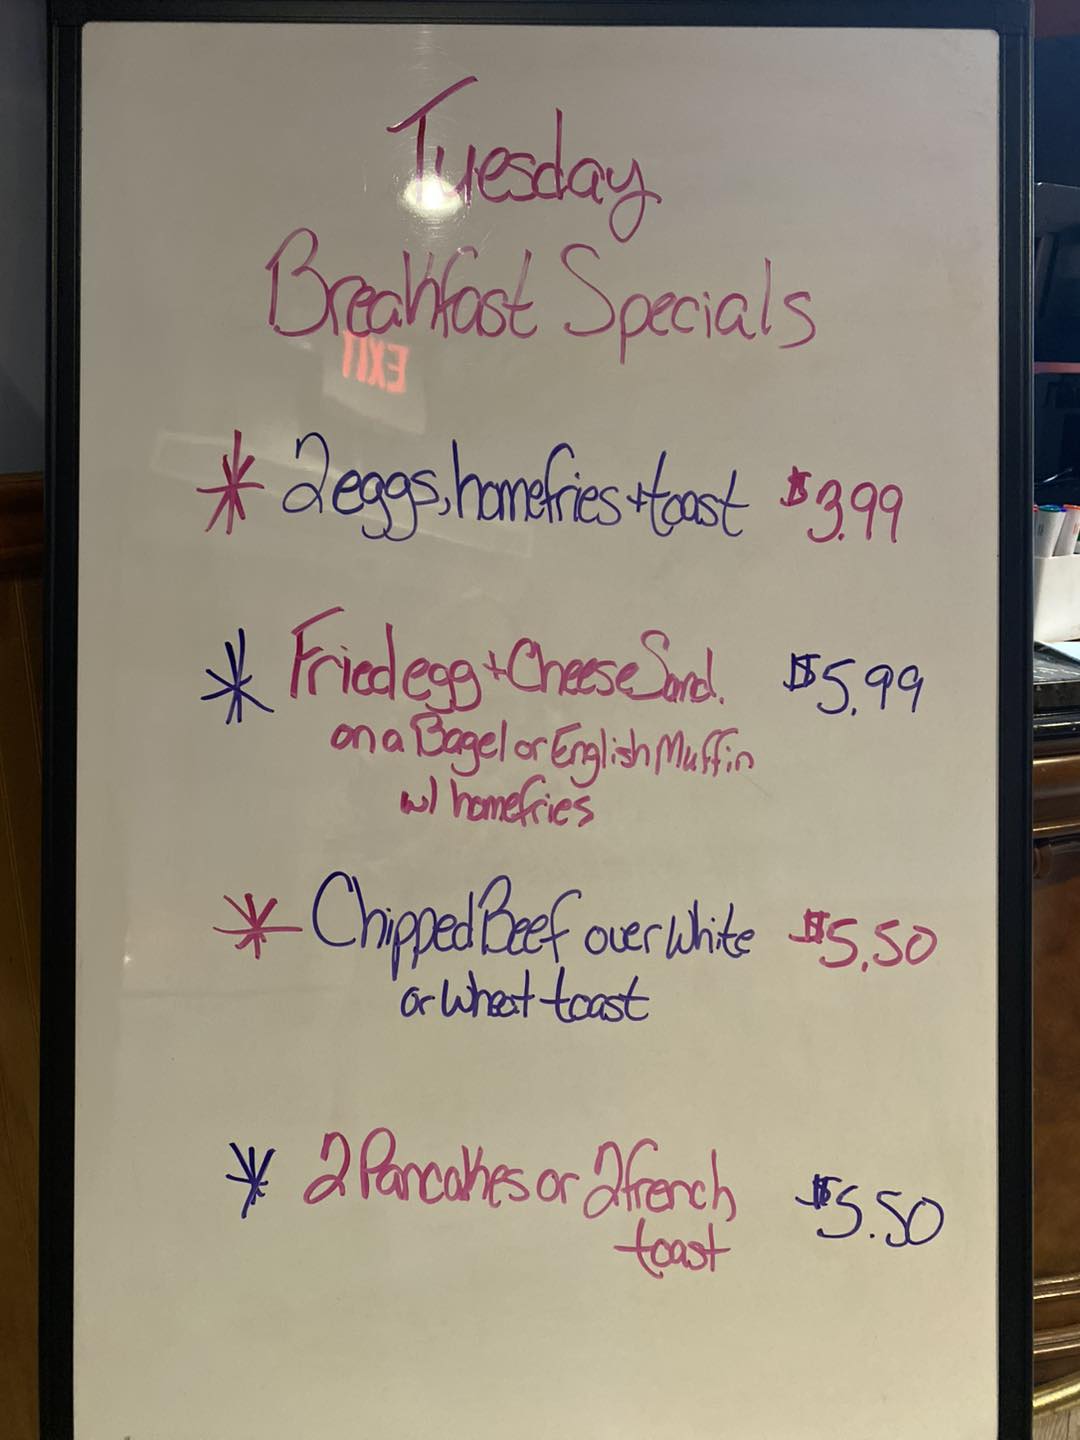 Tuesday
Breakfast Specials
EXIT
* 2 eggs, homefries + toast $3.99
* Fried egg + Cheese Sand. $5.99
on a Bagel or English Muffin
w/ homefries
* Chipped Beef over White $5.50
or Wheat toast
* 2 Pancakes or 2 french $5.50
toast